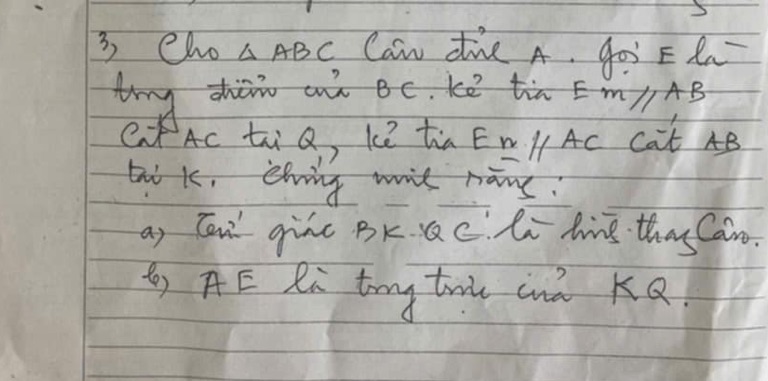 3, Cho △ ABC Cân đỉnh A. gọi E là
trung điểm của BC. Kẻ tia Em // AB
Cắt AC tại Q, kẻ tia En // AC Cắt AB
tại K. Chứng minh rằng:
a) Tứ giác BKQC là hình thang Cân.
b) AE là trung trực của KQ.